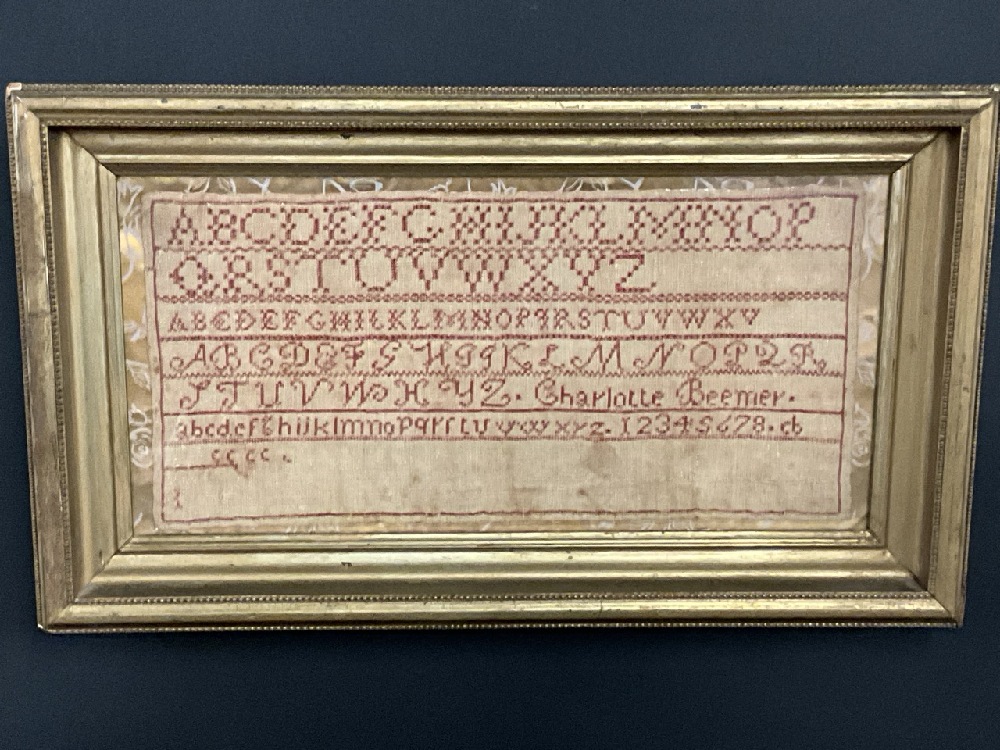 ABCDEFGHIJKLMNOP
QRSTUVWXYZ
ABCDEFGHILKLMNOPQRSTUVWXY
ABCDEFGHIJKLMNOPQR
STUVWXYZ. Charlotte Beemer.
abcdefghijklmnopqrſtuvwxyz. 12345678. cb